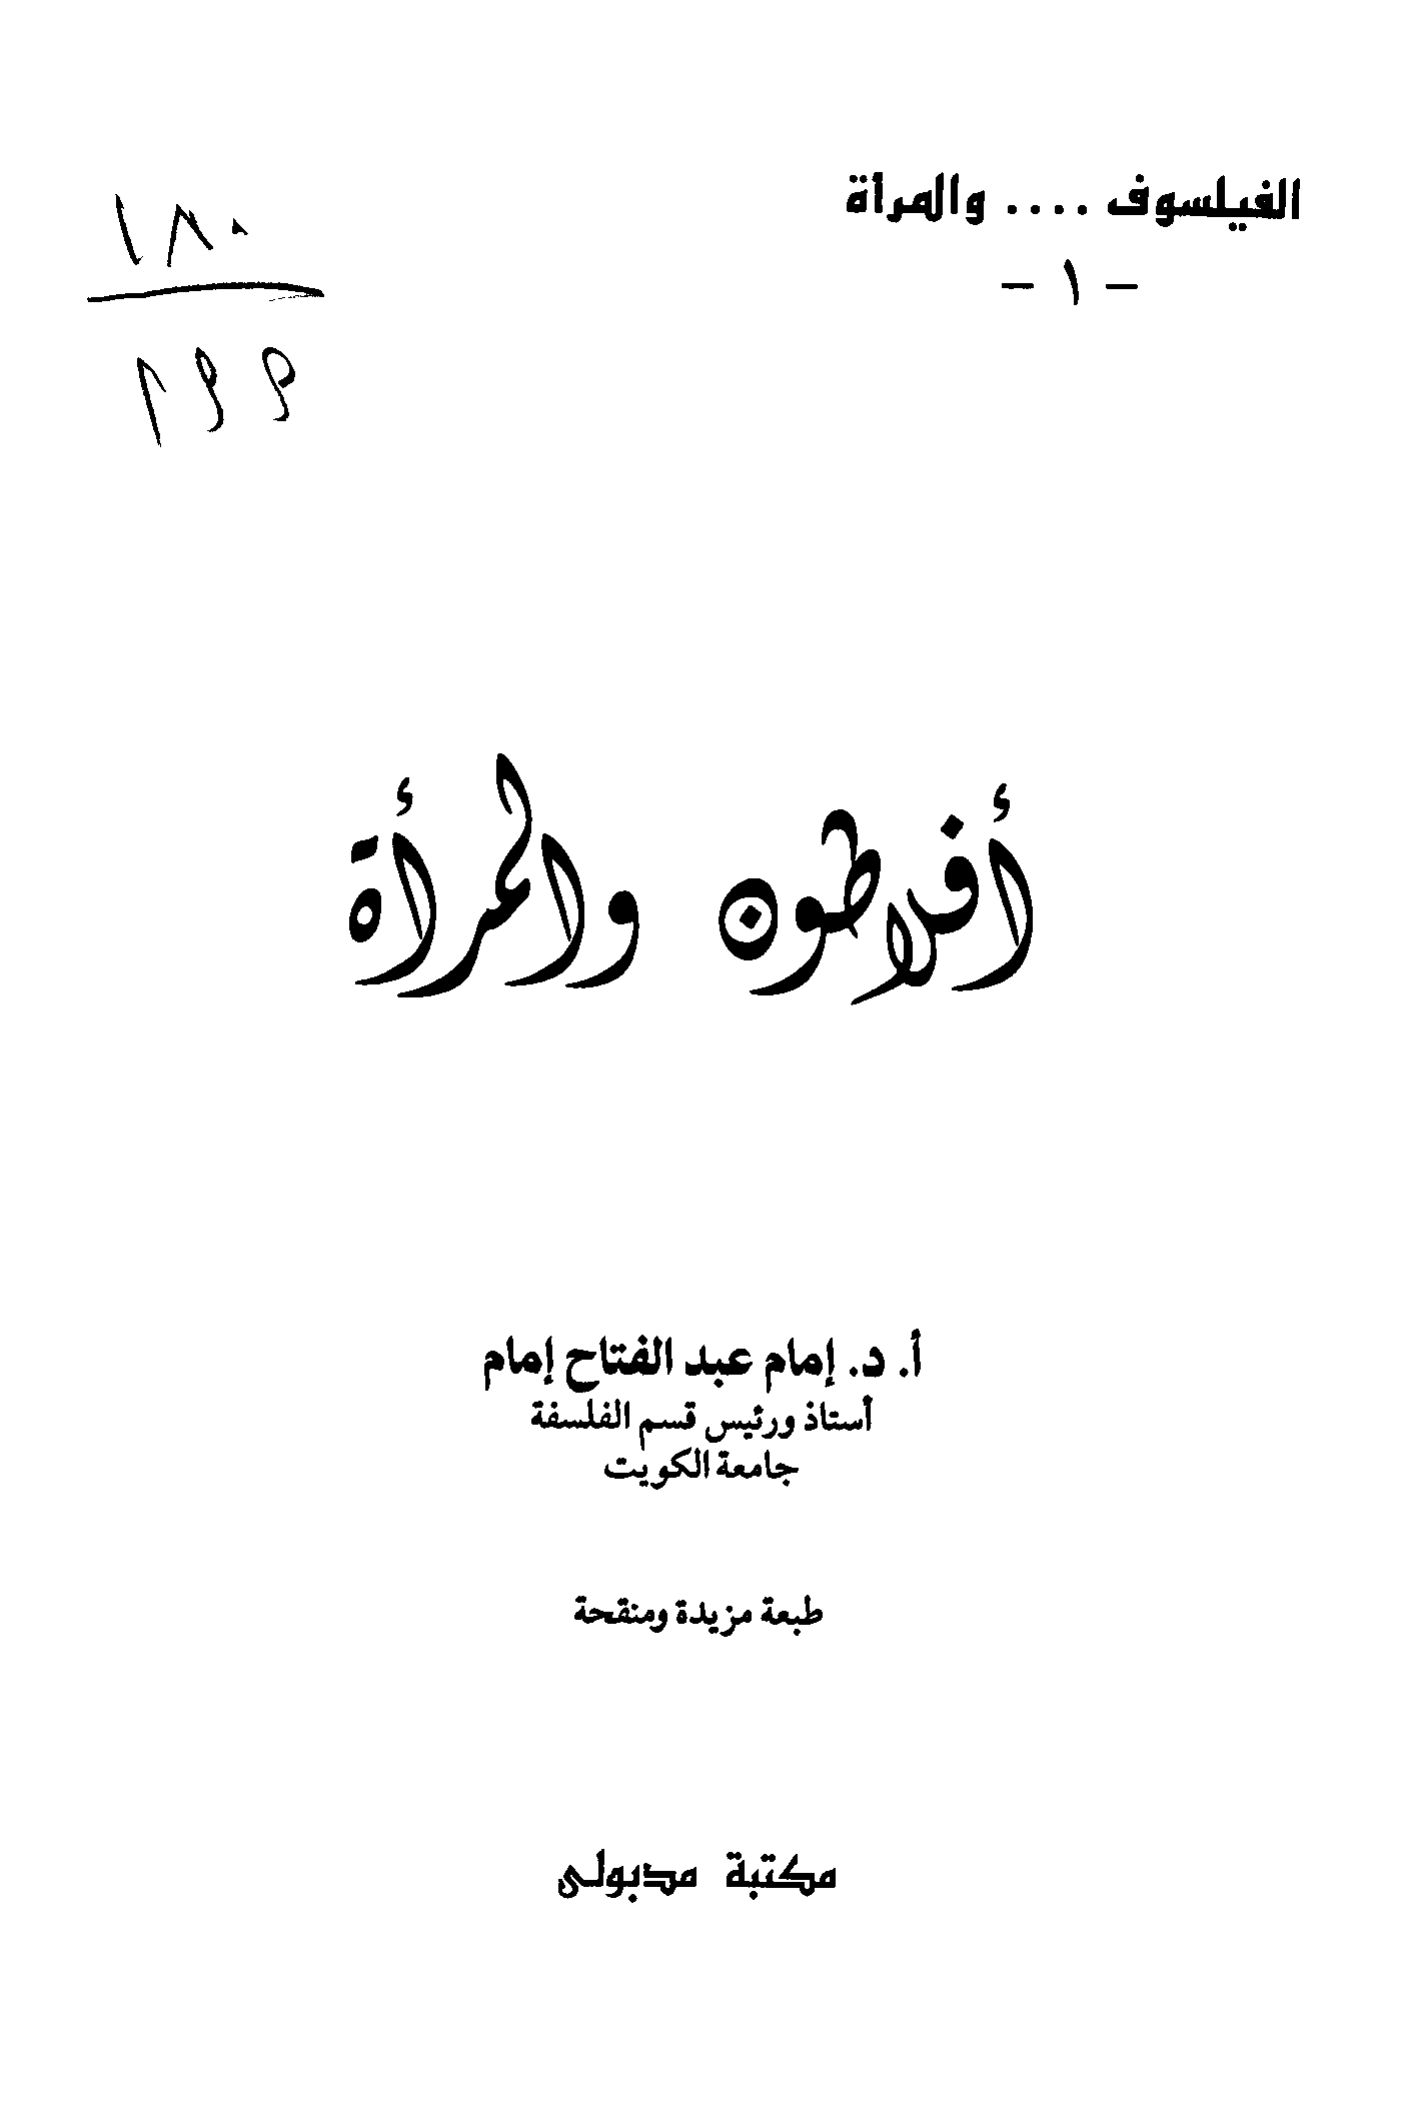 الفيلسوف .... والمرأة
- ١ -
١٨٠
أفلاطون والمرأة
أ. د. إمام عبد الفتاح إمام
أستاذ ورئيس قسم الفلسفة
جامعة الكويت
طبعة مزيدة ومنقحة
مكتبة مدبولى